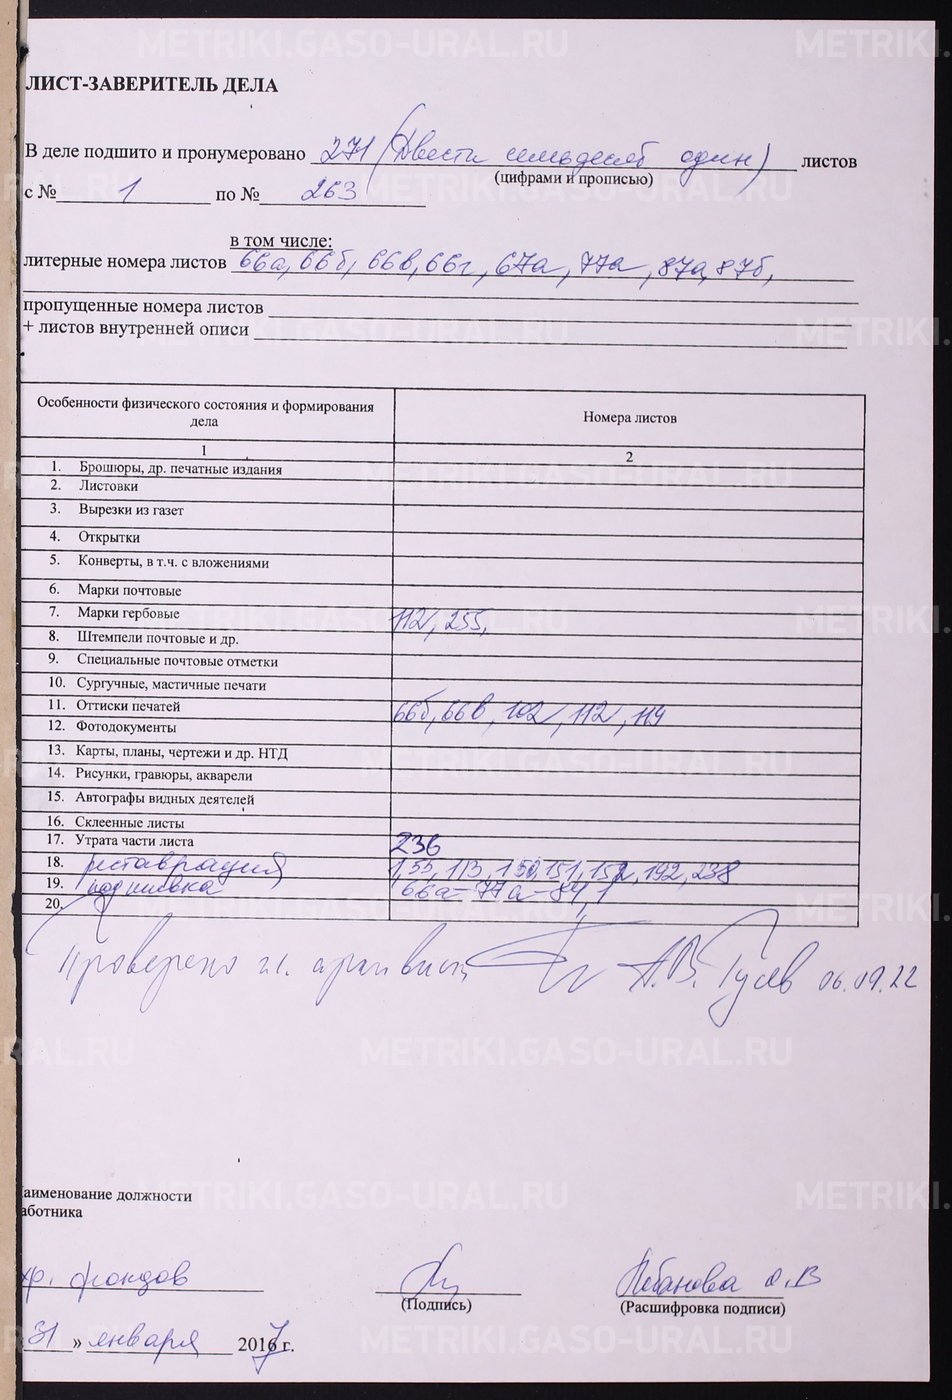 ЛИСТ-ЗАВЕРИТЕЛЬ ДЕЛА
В деле подшито и пронумеровано 271 (Двести семьдесят один) листов
(цифрами и прописью)
с № 1 по № 263
в том числе:
литерные номера листов 66а, 66б, 66в, 66г, 67а, 77а, 87а, 87б,
пропущенные номера листов
+ листов внутренней описи
Особенности физического состояния и формирования дела
Номера листов
1
2
1. Брошюры, др. печатные издания
2. Листовки
3. Вырезки из газет
4. Открытки
5. Конверты, в т.ч. с вложениями
6. Марки почтовые
7. Марки гербовые 112, 255,
8. Штемпели почтовые и др.
9. Специальные почтовые отметки
10. Сургучные, мастичные печати
11. Оттиски печатей 66б, 66в, 102, 112, 114
12. Фотодокументы
13. Карты, планы, чертежи и др. НТД
14. Рисунки, гравюры, акварели
15. Автографы видных деятелей
16. Склеенные листы
17. Утрата части листа 236
18. реставрация 1, 55, 113, 150, 151, 152, 192, 238
19. подшивка 66а-77а-84,
20.
Проверено гл. архивист А.В. Гуляв 06.09.22
аименование должности
аботника
хр. фондов
(Подпись)
О.В
(Расшифровка подписи)
31 » января 2017 г.
METRIKI.GASO-URAL.RU